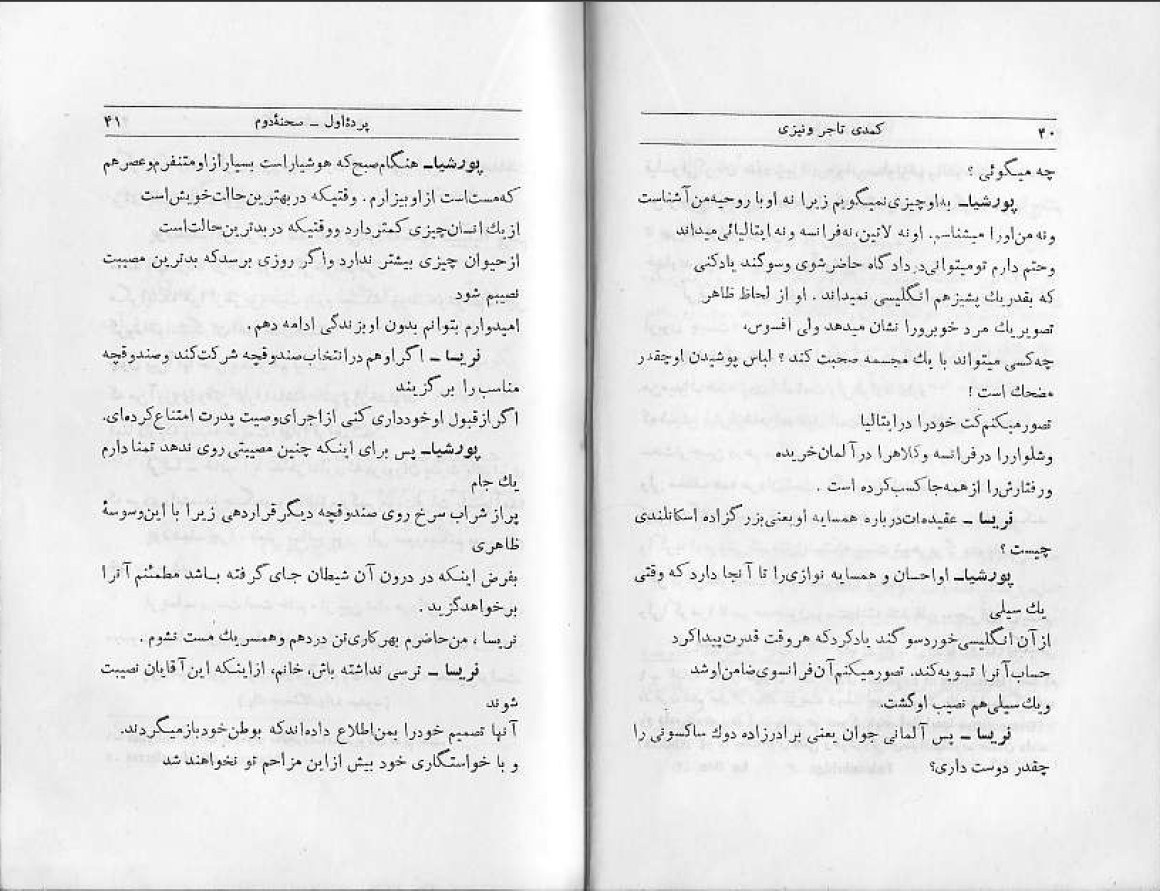 ۴۰
کمدی تاجر ونیزی
چه میگوئی ؟
پورشیا– به‌او چیزی نمیگویم زیرا نه او با روحیه من آشناست
و نه من اورا میشناسم. او نه لاتین، نه فرانسه و نه ایتالیائی میداند
و حتم دارم تو میتوانی در دادگاه حاضر شوی و سوگند یاد کنی
که بقدر یك پشیز هم انگلیسی نمیداند . او از لحاظ ظاهر
تصویر یك مرد خوبرو را نشان میدهد ولی افسوس،
چه کسی میتواند با یك مجسمه صحبت کند ؟ لباس پوشیدن او چقدر
مضحك است !
تصور میکنم کت خود را در ایتالیا
و شلوار را در فرانسه و کلاه را در آلمان خریده
و رفتارش را از همه جا کسب کرده است .
نریسا – عقیده‌ات درباره همسایه او یعنی بزرگزاده اسکاتلندی
چیست ؟
پورشیا– او احسان و همسایه نوازی را تا آنجا دارد که وقتی
یك سیلی
از آن انگلیسی خورد سوگند یاد کرد که هر وقت قدرت پیدا کرد
حساب آنرا تسویه کند. تصور میکنم آن فرانسوی ضامن او شد
و یك سیلی هم نصیب او گشت.
نریسا – پس آلمانی جوان یعنی برادرزاده دوك ساکسونی را
چقدر دوست داری؟
پردهٔ اول – صحنهٔ دوم
۴۱
پورشیا– هنگام صبح که هوشیار است بسیار از او متنفرم و عصر هم
که مست است از او بیزارم . وقتیکه در بهترین حالت خویش است
از یك انسان چیزی کمتر دارد و وقتیکه در بدترین حالت است
از حیوان چیزی بیشتر ندارد و اگر روزی برسد که بدترین مصیبت
نصیبم شود
امیدوارم بتوانم بدون او بزندگی ادامه دهم .
نریسا – اگر او هم در انتخاب صندوقچه شرکت کند و صندوقچه
مناسب را برگزیند
اگر از قبول او خودداری کنی از اجرای وصیت پدرت امتناع کرده‌ای.
پورشیا– پس برای اینکه چنین مصیبتی روی ندهد تمنا دارم
یك جام
پر از شراب سرخ روی صندوقچه دیگر قرار دهی زیرا با این وسوسهٔ
ظاهری
بفرض اینکه در درون آن شیطان جای گرفته باشد مطمئنم آنرا
بر خواهد گزید .
نریسا ، من حاضرم بهر کاری تن در دهم و همسر یك مست نشوم .
نریسا – ترسی نداشته باش، خانم، از اینکه این آقایان نصیبت
شوند
آنها تصمیم خود را بمن اطلاع داده‌اند که بوطن خود باز میگردند.
و با خواستگاری خود بیش از این مزاحم تو نخواهند شد